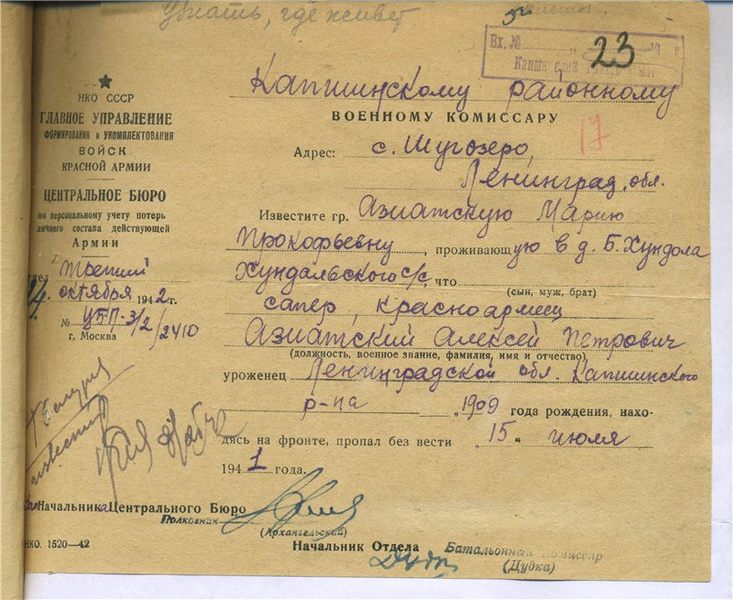 Узнать, где живет
Вх. №
23
НКО СССР
ГЛАВНОЕ УПРАВЛЕНИЕ
ФОРМИРОВАНИЯ и УКОМПЛЕКТОВАНИЯ
ВОЙСК
КРАСНОЙ АРМИИ
ЦЕНТРАЛЬНОЕ БЮРО
по персональному учету потерь
личного состава действующей
Армии
Третий
14 октября 1942 г.
№ УБП-3/2/2410
г. Москва
Капшинскому районному
ВОЕННОМУ КОМИССАРУ
17
Адрес: с. Шугозеро,
Ленинград. обл.
Известите гр. Азиатскую Марию
Прокофьевну, проживающую в д. Б. Хундола
Хундальского с/с, что
(сын, муж, брат)
сапер, красноармеец
Азиатский Алексей Петрович
(должность, военное звание, фамилия, имя и отчество)
уроженец Ленинградской обл. Капшинского
р-на 1909 года рождения, нахо-
дясь на фронте, пропал без вести „15" июля
1941 года.
Начальника Центрального Бюро
Полковник
(Архангельский)
НКО. 1520—42
Начальник Отдела Батальонный комиссар
(Дудка)